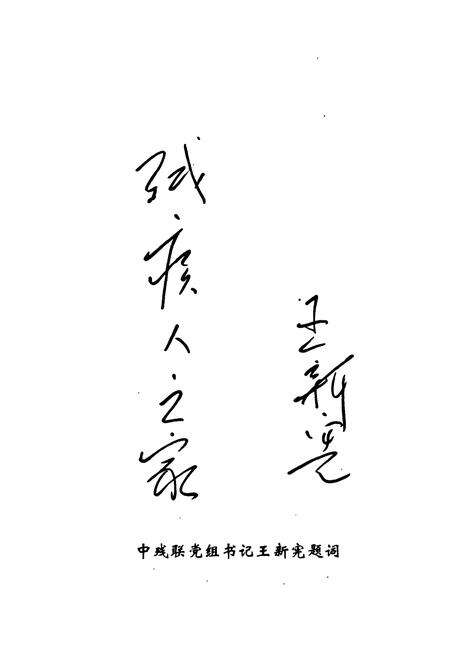 残疾人之家
王新宪
中残联党组书记王新宪题词